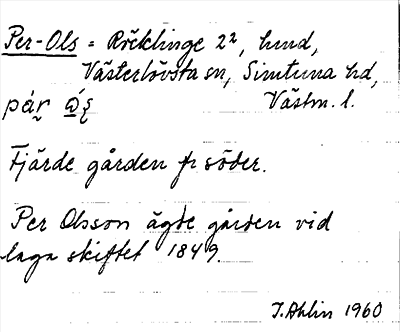 Per-Ols = Röcklinge 2², hmd,
Västerlövsta sn, Simtuna hd,
Västm. l.
Fjärde gården fr söder.
Per Olsson ägde gården vid
laga skiftet 1849.
I. Ahlin 1960